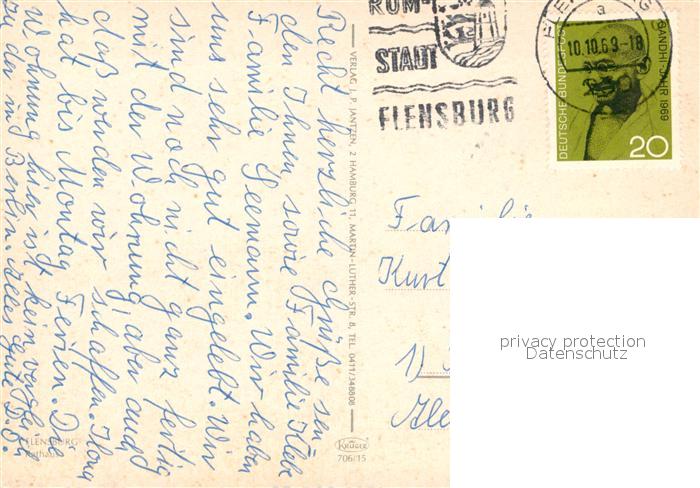 Recht herzliche Grüße sen-
den Ihnen sowie Familie Klebe
Familie Seemann. Wir haben
uns sehr gut eingelebt. Wir
sind noch nicht ganz fertig
mit der Wohnung, aber auch
daß werden wir schaffen. Ilona
hat bis Montag Ferien. Die
Wohnung hier ist kein vergleich
zu der in Berlin. Alles Gute
VERLAG J. P. JANTZEN, 2 HAMBURG 11, MARTIN-LUTHER-STR. 8, TEL. 0411/348808
KRÜGER
706/15
FLENSBURG
Rathaus
RUM-
STADT
FLENSBURG
FLENSBURG
a
10.10.69-18
DEUTSCHE BUNDESPOST
GANDHI-JAHR 1969
20
Familie
Kurt
1)
privacy protection
Datenschutz